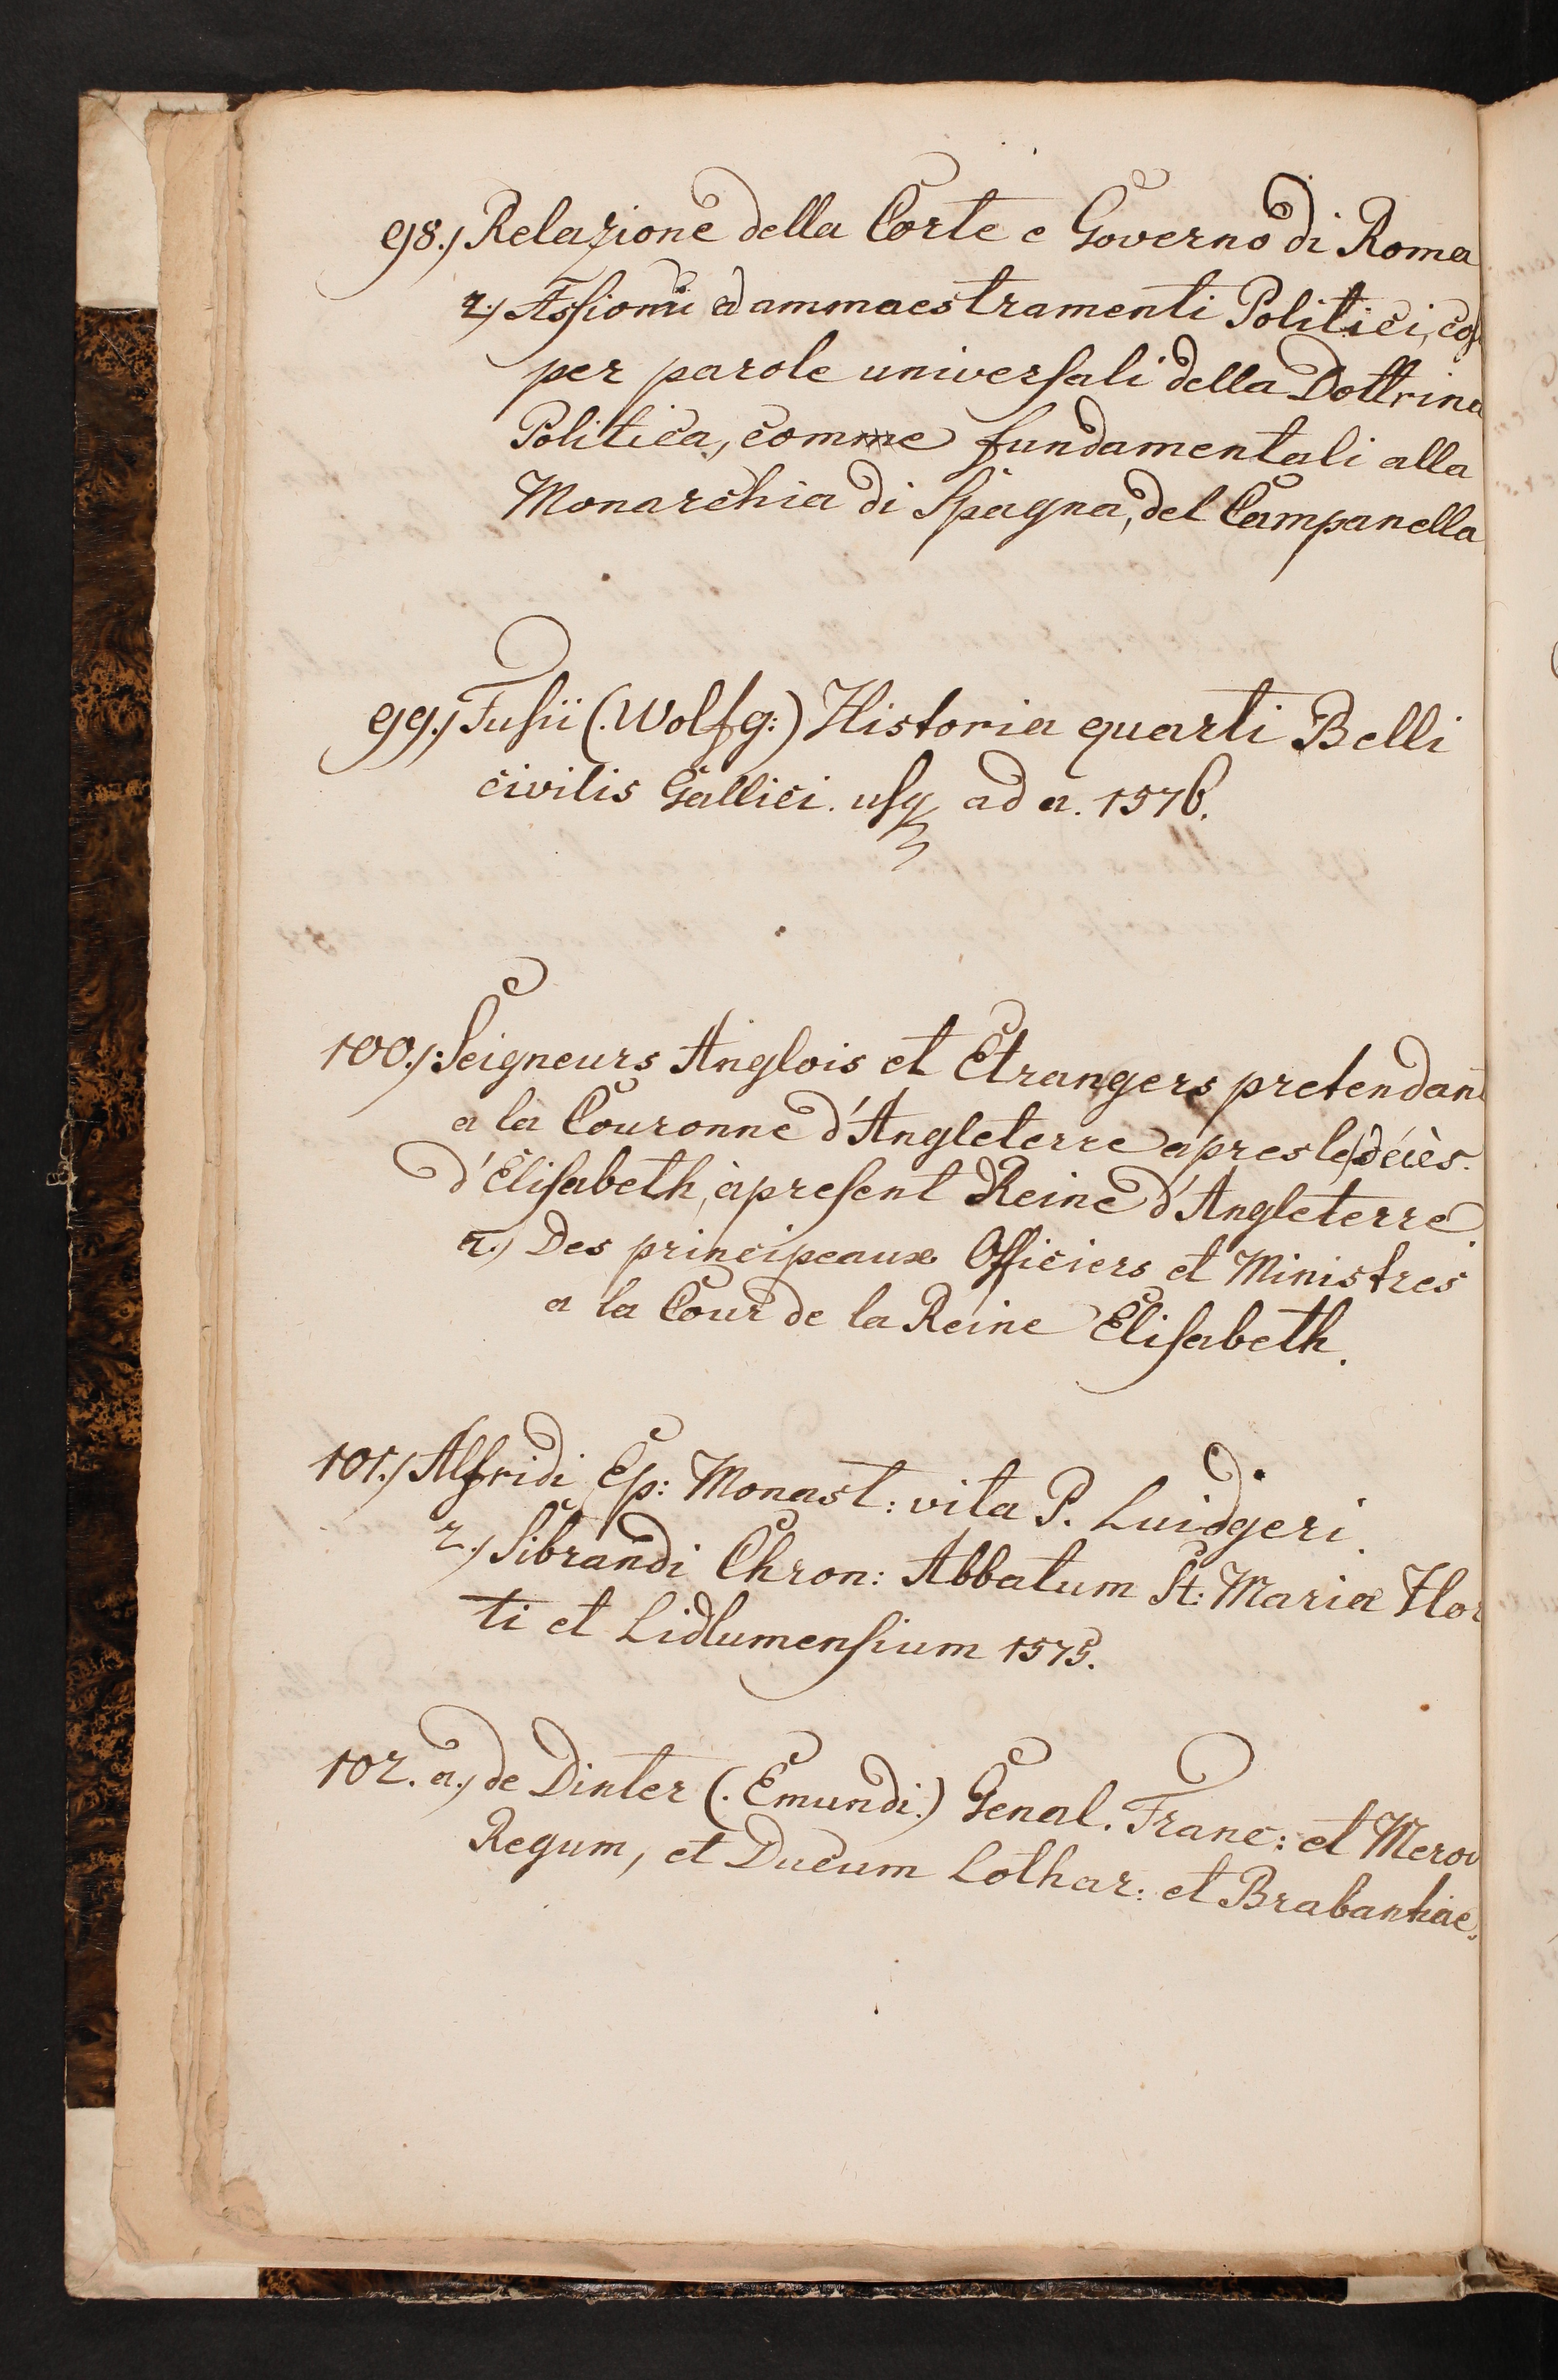 98.) Relazione della Corte e Governo di Roma
2.) Assiomi ed ammaestramenti Politici, cos
per parole universali della Dottrina
Politica, comme fundamentali alla
Monarchia di Spagna, del Campanella
99.) Fusii (. Wolfg:) Historia quarti Belli
civilis Gallici. usq ad a. 1576.
100.) Seigneurs Anglois et Etrangers pretendan
a la Couronne d'Angleterre apres le décès.
d'Elisabeth, à present Reine d'Angleterre.
2.) Des principeaux Officiers et Ministres
a la Cour de la Reine Elisabeth.
101.) Alfridi Ep: Monast: vita S. Luidgeri.
2.) Sibrandi Chron: Abbatum St: Mariæ Hor
ti et Lidlumensium 1575.
102. a.) de Dinter (. Emundi.) Geneal. Franc: et Merov
Regum, et Ducum Lothar: et Brabantiae.